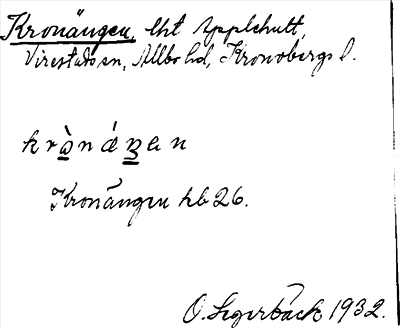 Kronängen, lht Applehult,
Virestads sn, Allbo hd, Kronobergs l.
krònáŋen
Kronängen hb 26.
O. Segerbäck 1932.